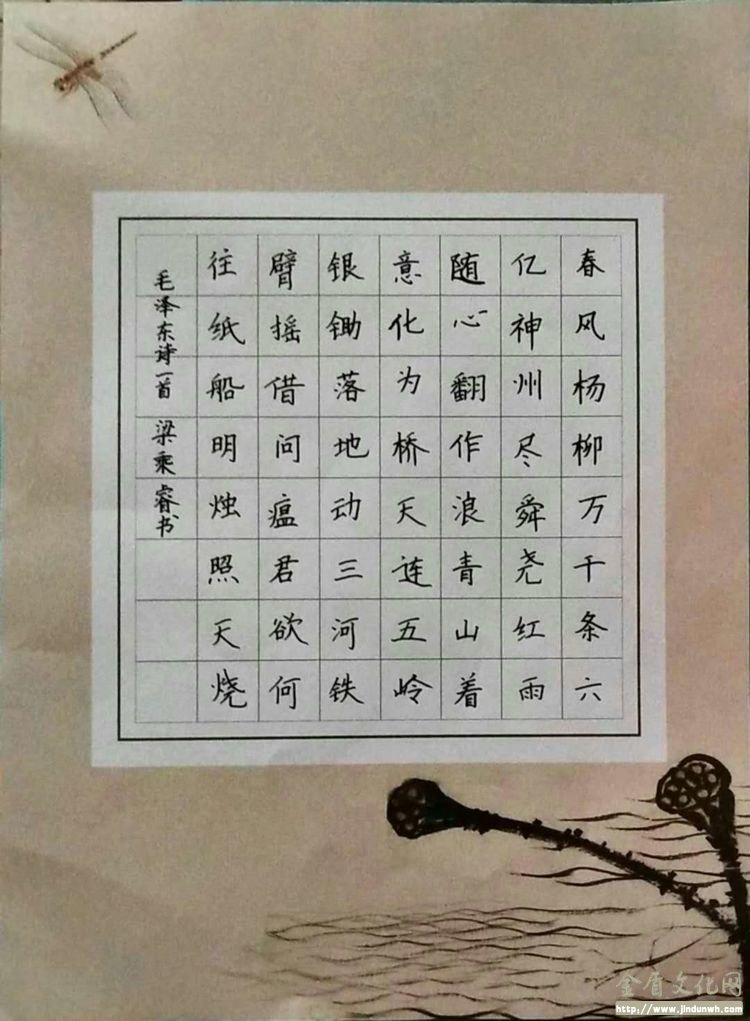 春风杨柳万千条六
亿神州尽舜尧红雨
随心翻作浪青山着
意化为桥天连五岭
银锄落地动三河铁
臂摇借问瘟君欲何
往纸船明烛照天烧
毛泽东诗一首 梁乘睿书
金盾文化网
http://www.jindunwh.com